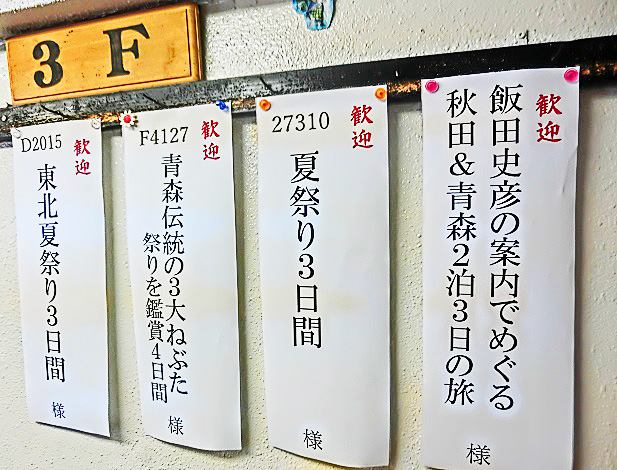 3F
歓迎
飯田史彦の案内でめぐる
秋田&青森2泊3日の旅
様
歓迎
27310
夏祭り3日間
様
歓迎
F4127
青森伝統の3大ねぶた
祭りを鑑賞4日間
様
歓迎
D2015
東北夏祭り3日間
様